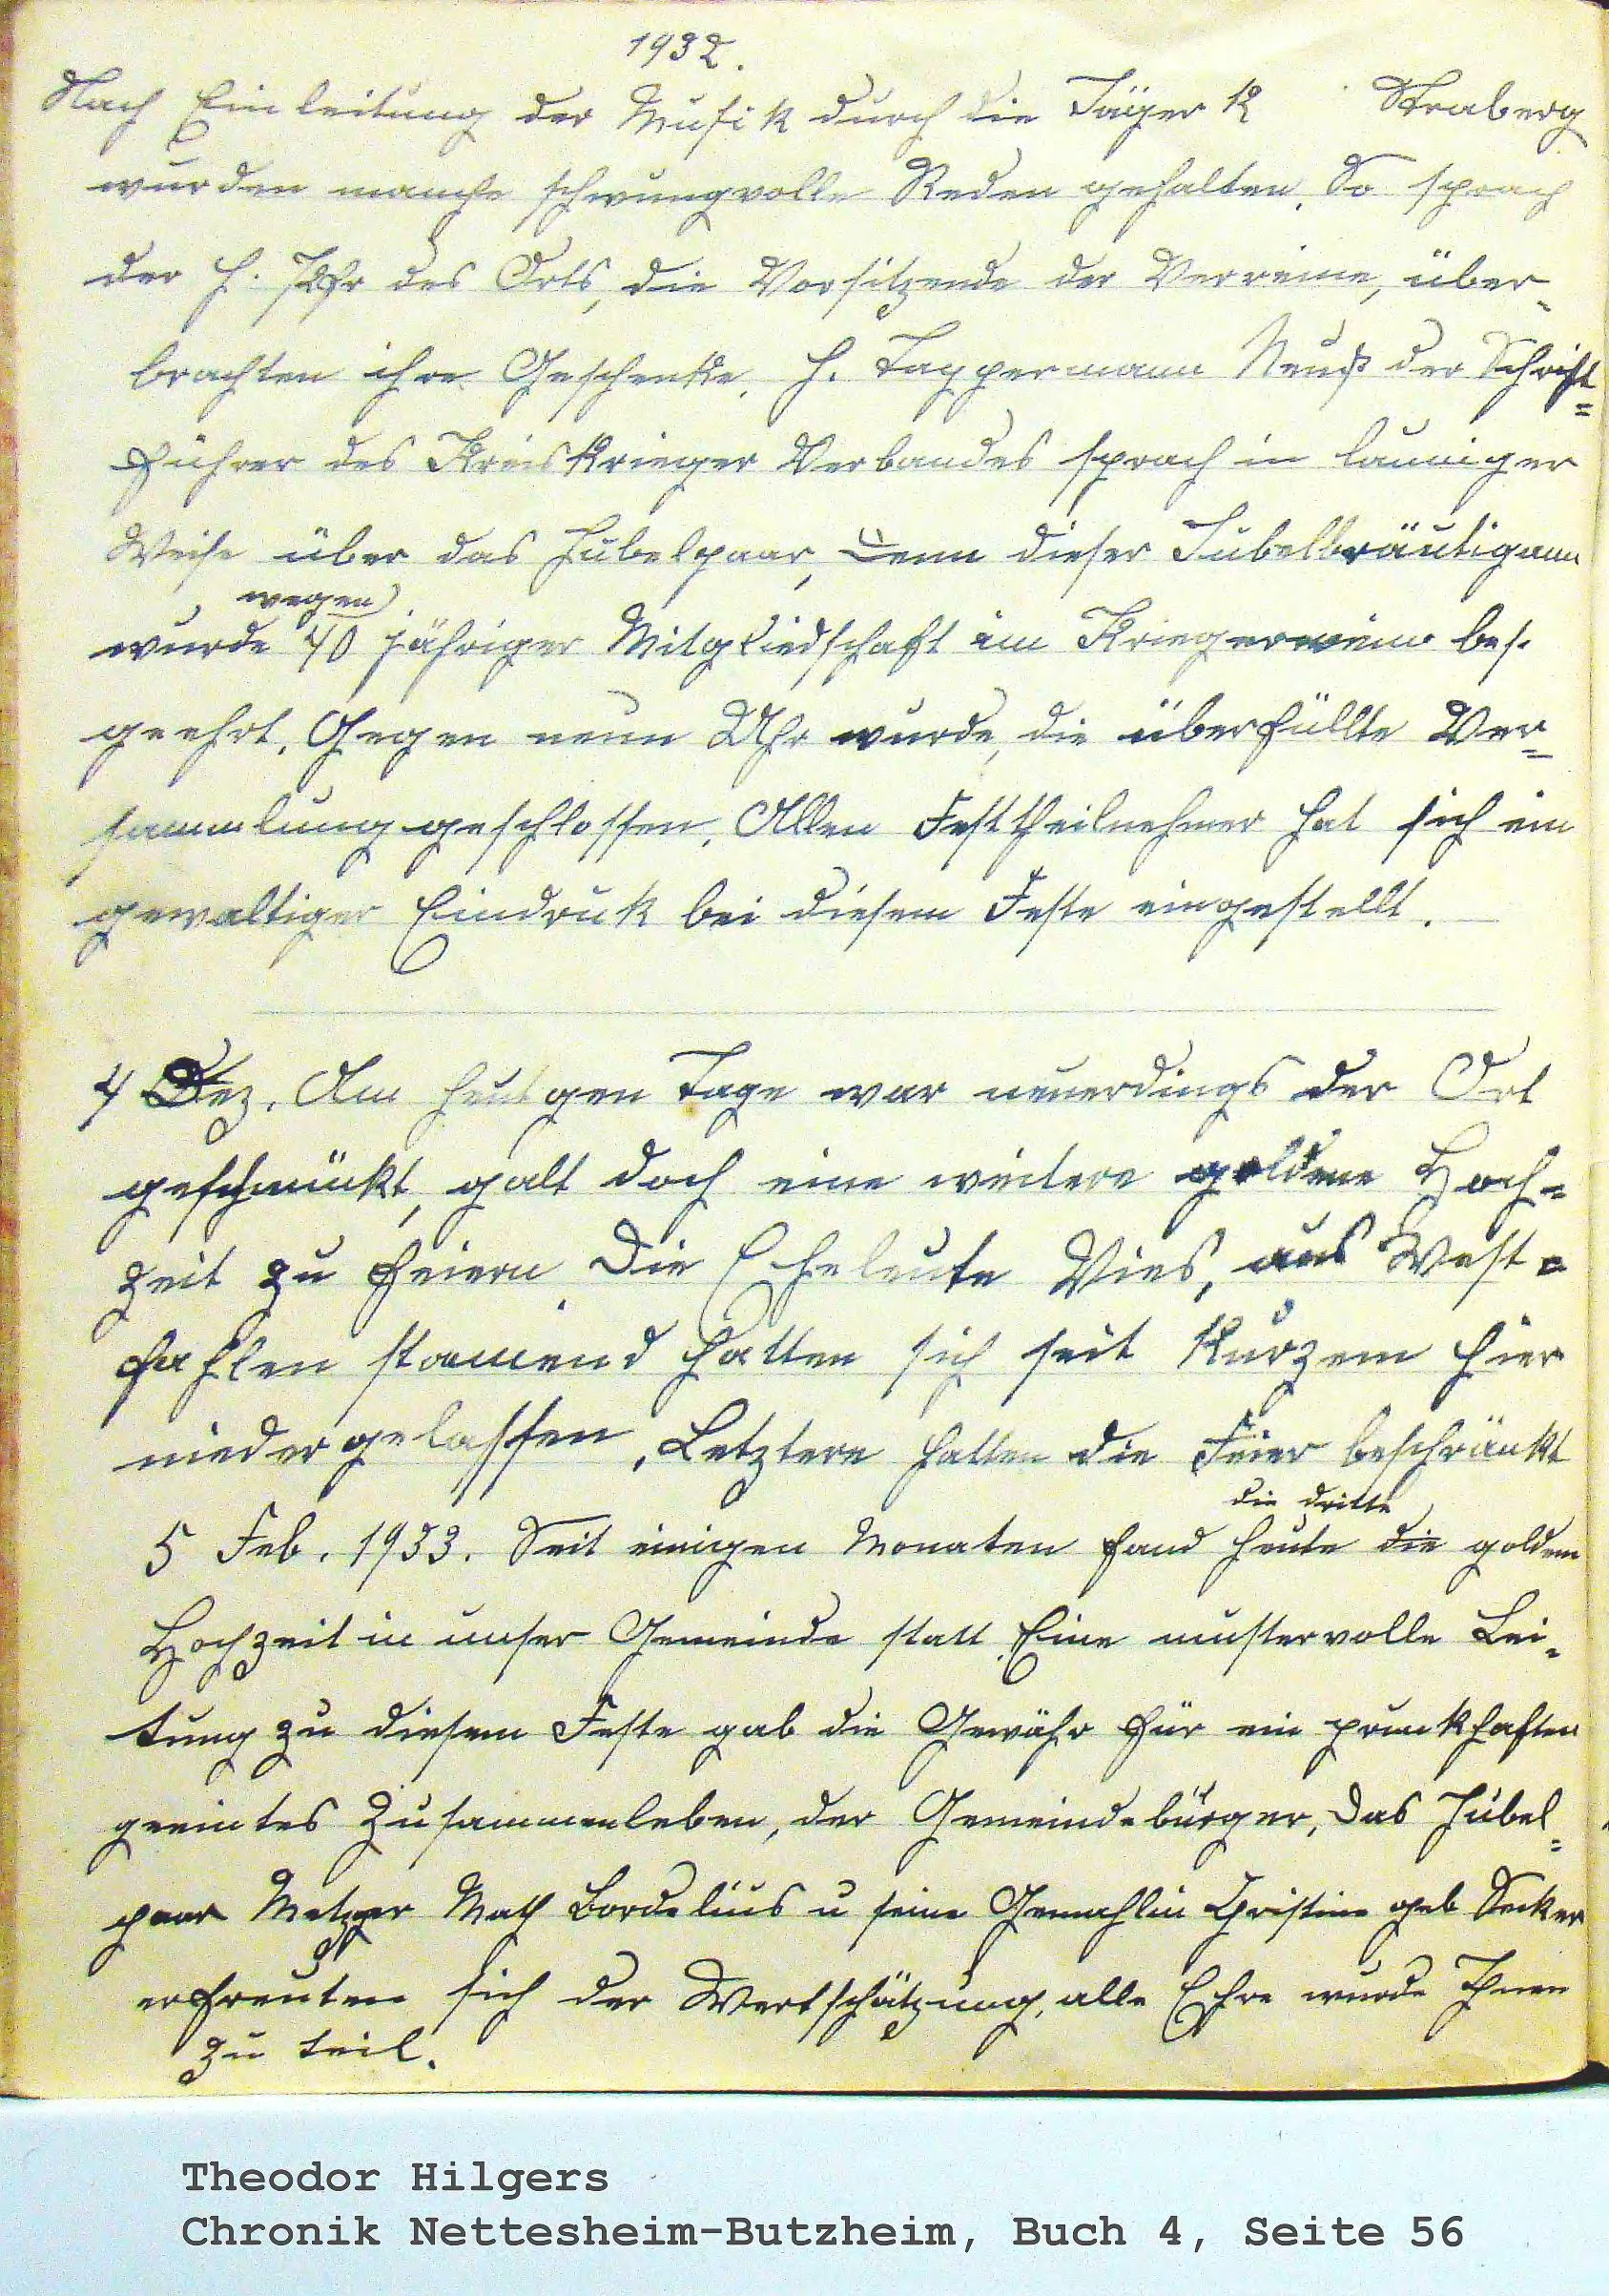 1932.
Nach Einleitung der Musik durch die Jäger K Straberg
wurden manche schwungvolle Reden gehalten. So sprach
der H. Pfr des Orts, die Vorsitzende der Verreine, über-
brachten ihre Geschenke. H. Tappermann Neuß der Schrift=
führer des Kreiskrieger Verbandes sprach in launiger
Weise über das Jubelpaar, denn dieser Jubelbräutigam
wegen
wurde 40 jähriger Mitgliedschaft im Kriegerverein bes.
geehrt. Gegen neun Uhr wurde, die überfüllte Ver=
sammlung geschlossen. Allen Festtheilnehmer hat sich ein
gewaltiger Eindruk bei diesem Feste eingestellt.
4 Dez. Am heutgen Tage war neuerdings der Ort
geschmückt, galt doch eine weitere goldene Hoch=
zeit zu feiern. Die Eheleute Vies, aus West=
fahlen stamend hatten sich seit Kurzem hier
niedergelassen. Letztere hatten die Feier beschränkt
die dritte
5 Feb. 1933. Seit einigen Monaten fand heute die goldene
Hochzeit in unser Gemeinde statt. Eine mustervolle Lei-
tung zu diesem Feste gab die Gewähr für ein prunkhaften
geeintes Zusammenleben, der Gemeindebürger, Das Jubel=
paar Metzger Math Bordelius u seine Gemahlin Christine geb Decker
erfreuten sich der Wertschätzung, alle Ehre wurde Ihnen
zu teil.
Theodor Hilgers
Chronik Nettesheim-Butzheim, Buch 4, Seite 56